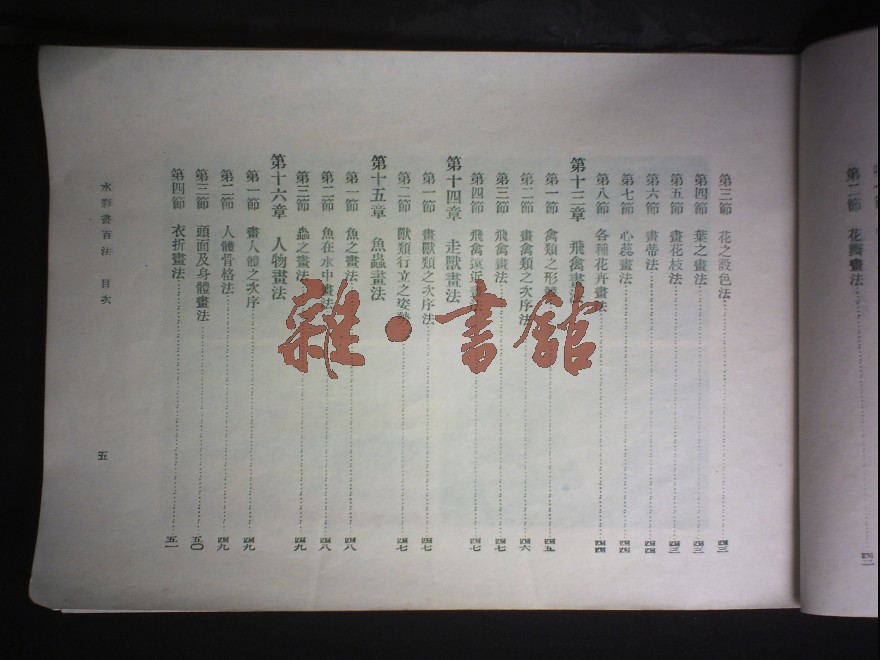 第二節 花瓣畫法 四二
第三節 花之設色法 四三
第四節 葉之畫法 四三
第五節 畫花枝法 四三
第六節 畫蒂法 四四
第七節 心蕊畫法 四四
第八節 各種花卉畫法 四四
第十三章 飛禽畫法
第一節 禽類之形 四五
第二節 畫禽類之次序法 四六
第三節 飛禽畫法 四七
第四節 飛禽遠近 四七
第十四章 走獸畫法
第一節 畫獸類之次序法 四七
第二節 獸類行立之姿勢 四七
第十五章 魚蟲畫法
第一節 魚之畫法 四八
第二節 魚在水中畫法 四八
第三節 蟲之畫法 四九
第十六章 人物畫法
第一節 畫人體之次序 四九
第二節 人體骨格法 四九
第三節 頭面及身體畫法 五〇
第四節 衣折畫法 五一
水彩畫百法 目次
五
雜·書館